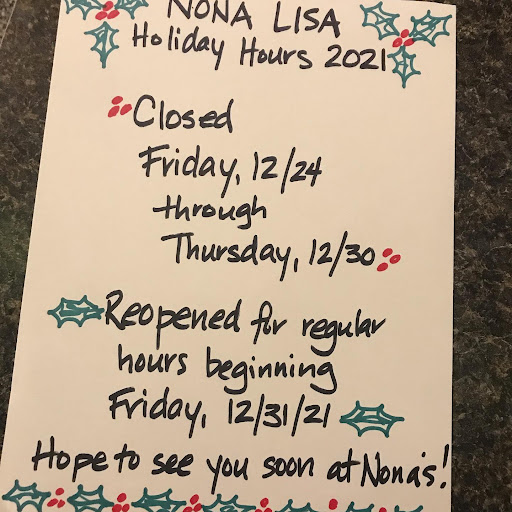 NONA LISA
Holiday Hours 2021
Closed
Friday, 12/24
through
Thursday, 12/30
Reopened for regular
hours beginning
Friday, 12/31/21
Hope to see you soon at Nona's!